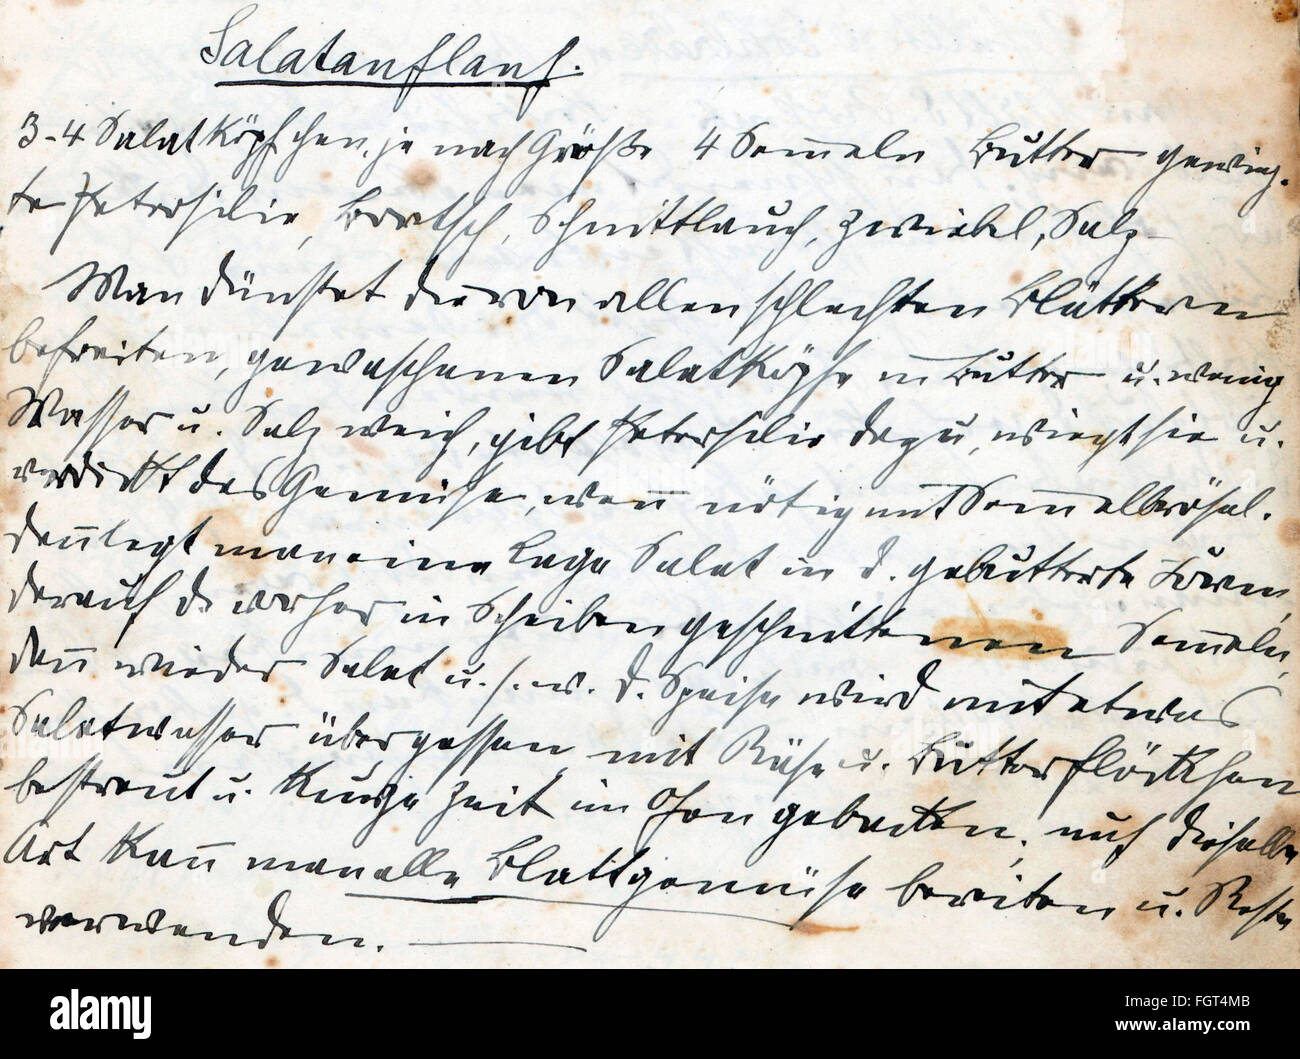 Salatauflauf.
3-4 Salatköpfchen, je nach Größe 4 Semmeln Butter gewieg-
te Petersilie, Borretsch, Schnittlauch, Zwiebel, Salz
Man dünstet die von allen schlechten Blättern
befreiten, gewaschenen Salatköpfe in Butter u. wenig
Wasser u. Salz weich, gibt Petersilie dazu, wiegt sie u.
verdickt das Gemüse, wenn nötig mit Semmelbrösel.
dann legt man eine Lage Salat in d. gebutterte Form,
darauf d. vorher in Scheiben geschnittenen Semmeln,
dann wieder Salat u.s.w. d. Speise wird mit etwas
Salatwasser übergossen mit Käse u. Butterflöckchen
bestreut u. kurze Zeit im Ofen gebacken, auf dieselbe
Art kann man alle Blattgemüse bereiten u. Reste
verwenden.
alamy
Image ID: FGT4MB
www.alamy.com